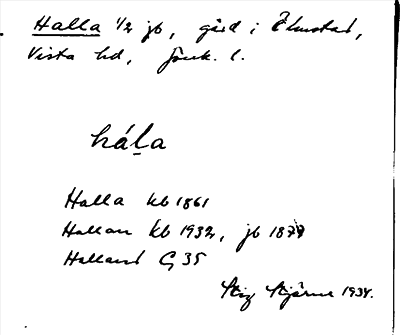 Halla 1/2 jb, gård i Ölmstad,
Vista hd, Jönk. l.
háḷa
Halla kb 1861
Hallan kb 1932, jb 1877
Halland G 35
Stig Stjärne 1934.